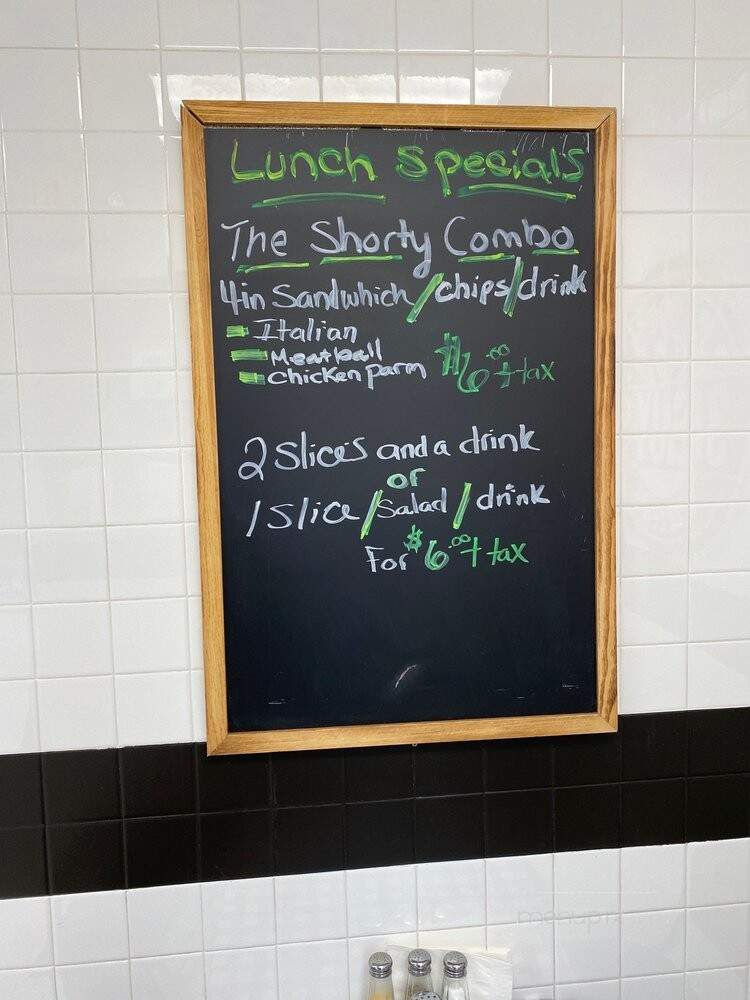 Lunch Spesials
The Shorty Combo
4in Sandwhich/chips/drink
- Italian
- Meatball
- chicken parm $6.00 + tax
2 Slices and a drink
or
1 Slice/Salad/drink
For $6.00 + tax
menupix